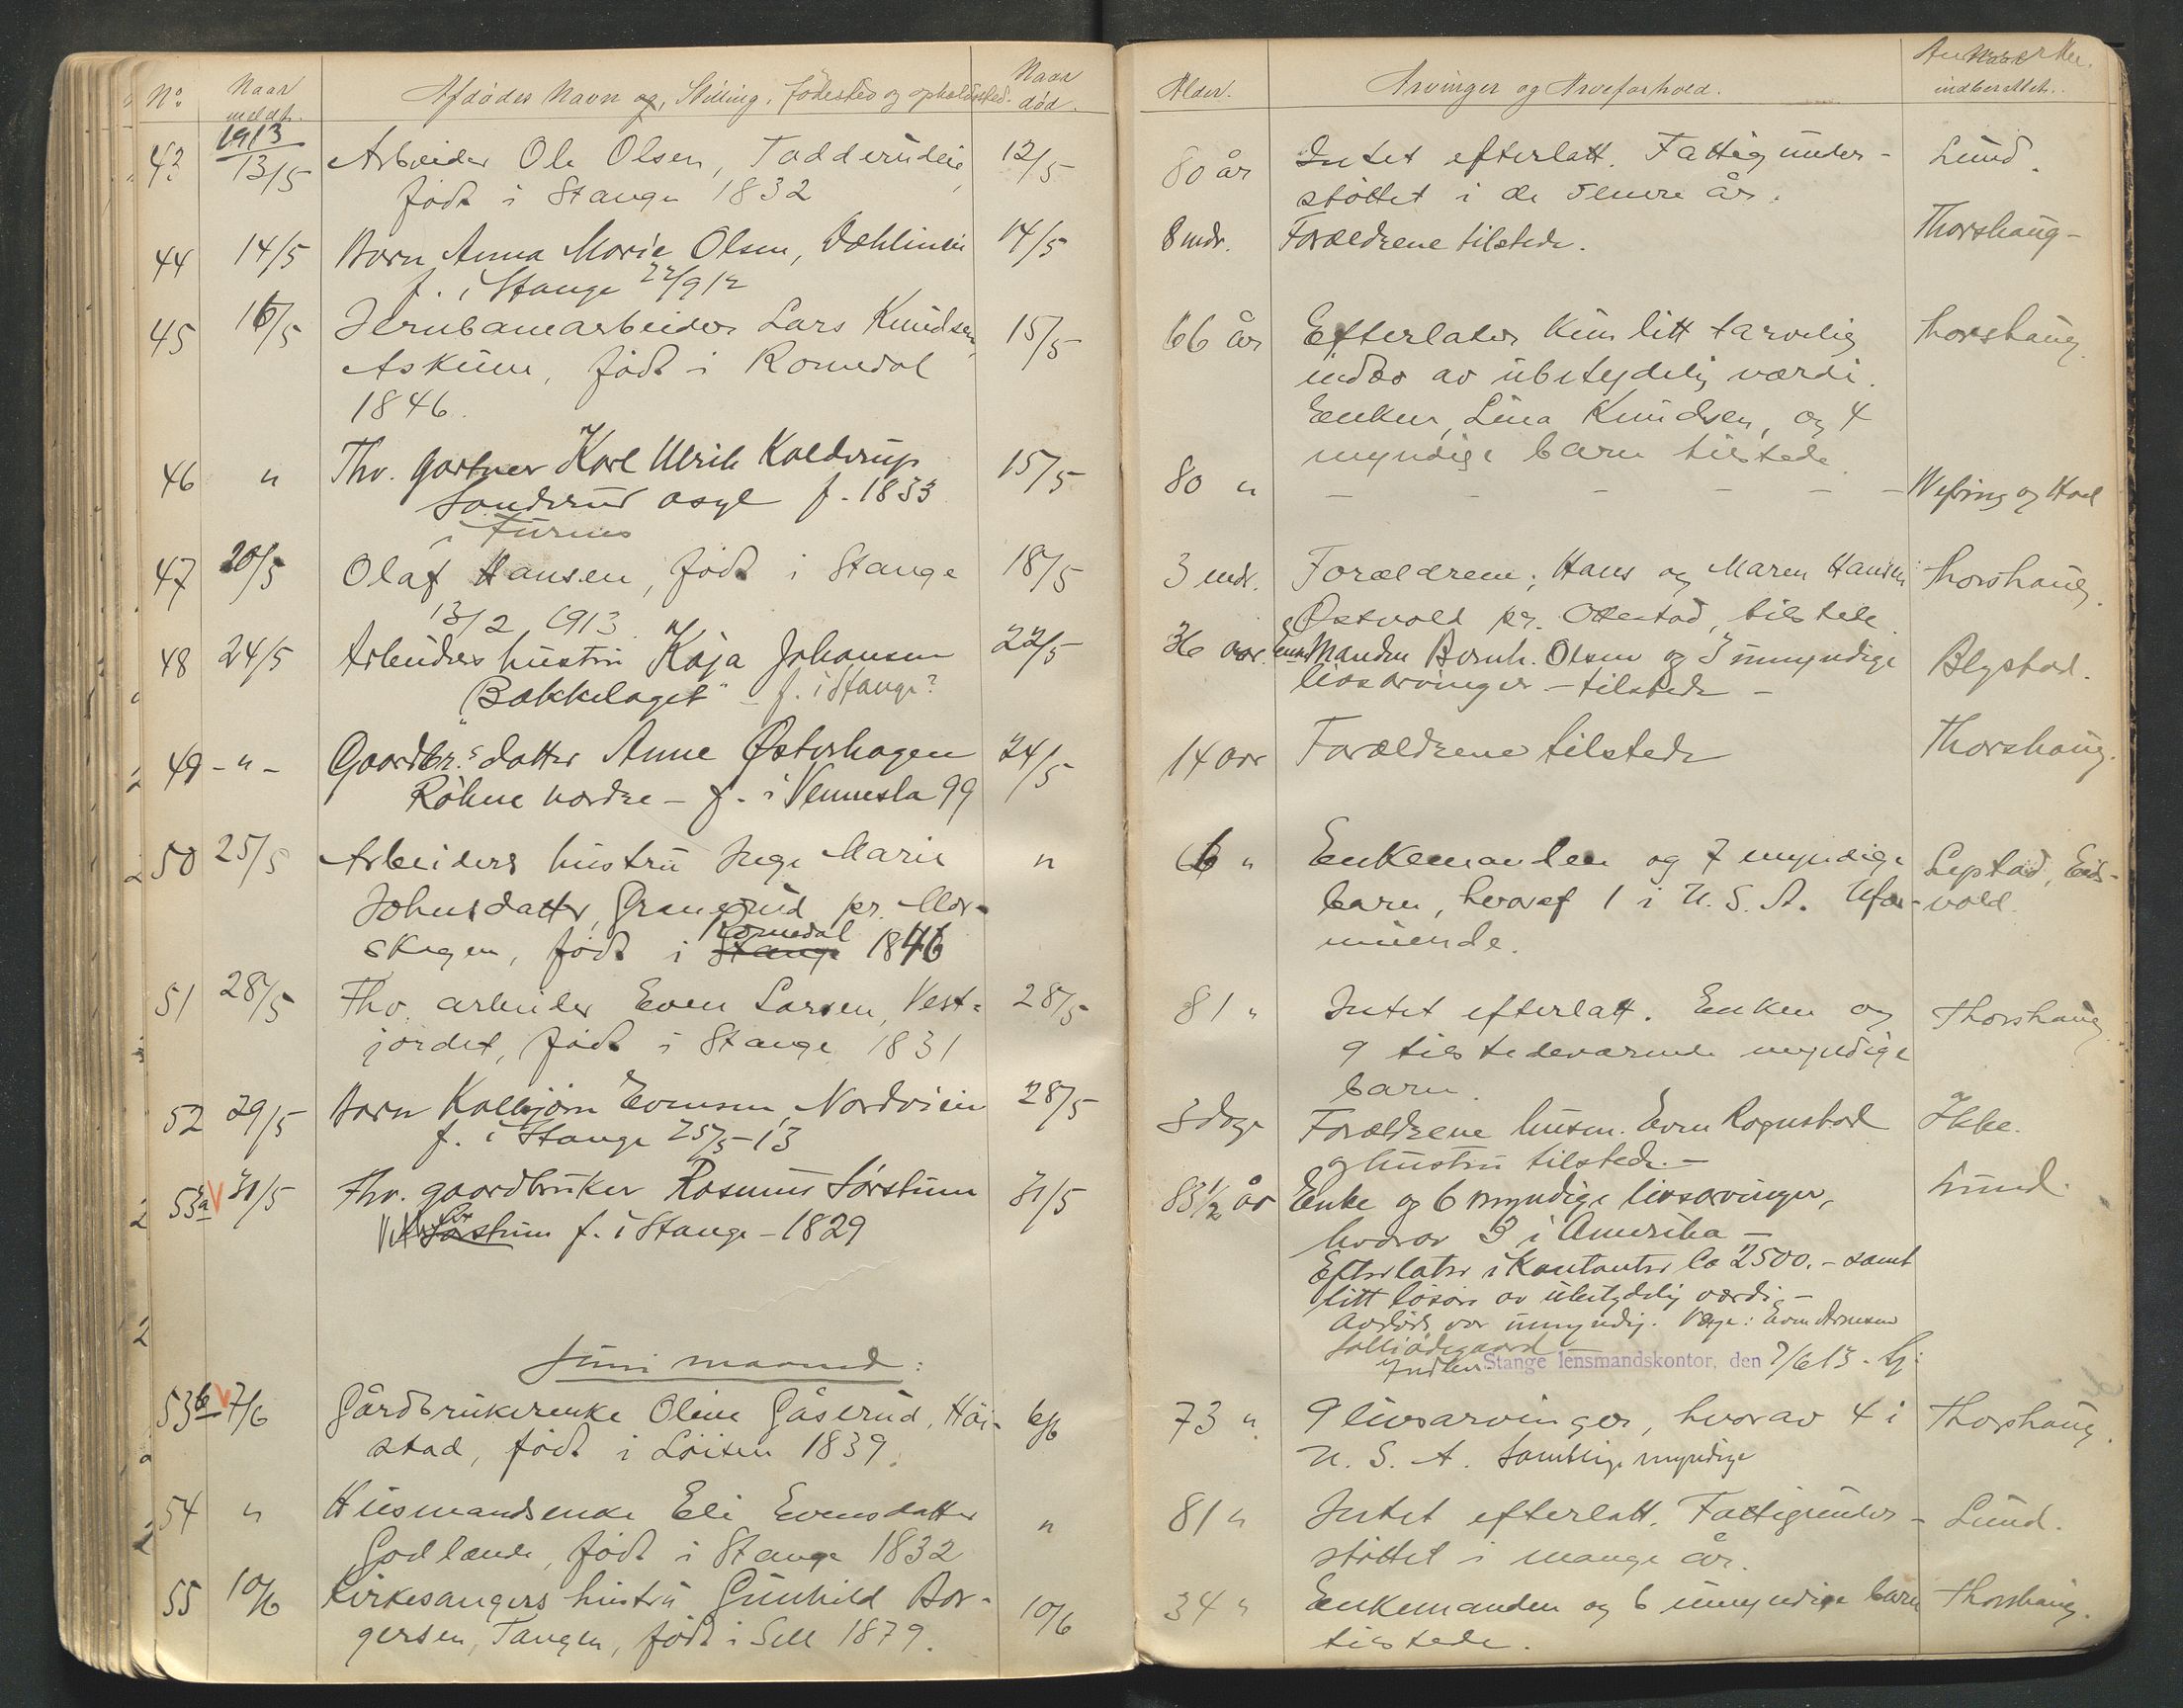 No
Naar meldt.
Afdødes Navn og, Stilling, fødested og opholdssted.
Naar død.
Alder.
Arvinger og Arveforhold.
indberettet.
1913
43 13/5 Arbeider Ole Olsen, Tadderudeie, 12/5
født i Stange 1832
80 år Intet efterlatt. Fattigunder- Lund.
støttet i de senere år.
44 14/5 Barn Anna Marie Olsen, Dæhlineie 14/5
f. i Stange 22/9 12
8 mdr. Forældrene tilstede. Thorshaug-
45 16/5 Jernbanearbeider Lars Knudsen, 15/5
Askum, født i Romedal
1846.
66 år Efterlater kun litt tarvelig Thorshaug.
indbo av ubetydelig værdi.
Enken, Lina Knudsen, og 4
myndige barn tilstede.
46 " Fhv. gartner Karl Ulrik Kaldrup 15/5
Sanderud asyl f. 1833
i Furnes
80 " – – – – – – Wefring og Hoel
47 20/5 Olaf Hansen, født i Stange 18/5
13/2 1913.
3 mdr. Forældrene; Hans og Maren Hansen Thorshaug.
Østvold pr. Ottestad, tilstede.
48 24/5 Arbeiders hustru Kaja Johansen 22/5
"Bækkelaget" – f. i Stange?
36 aar Manden Bernh. Olsen og 3 umyndige Blystad.
livsarvinger – tilstede –
49 – " – Gaardbr.s datter Anne Østerhagen 24/5
Röhne nordre – f. i Vennesla 99
14 aar Forældrene tilstede Thorshaug.
50 25/5 Arbeiders hustru Inge Marie "
Johnsdatter, Granerud pr. Mor-
skogen, født i Stange Romedal 1846
66 " Enkemanden og 7 myndige Lepstad, Eids-
barn, hvoraf 1 i U. S. A. Ufor- vold.
muende.
51 28/5 Fhv. arbeider Even Larsen, Vest- 28/5
jordet, født i Stange 1831
81 " Intet efterlatt. Enken og Thorshaug.
9 tilstedeværende myndige
barn.
52 29/5 Barn Kolbjørn Evensen, Nordvieie 28/5
f. i Stange 25/5-13
3 dage Forældrene husm. Even Rognstad Ikke.
og hustru tilstede. –
53a V 31/5 Fhv. gaardbruker Rasmus Sørstuen 31/5
f. i Stange – 1829
83 1/2 år Enke og 6 myndige livsarvinger, Lund.
hvorav 3 i Amerika –
Efterlater i kontanter ca 2500.- samt
litt løsøre av ubetydelig værdi –
Avdöde var umyndig. Værge: Even Arnesen
Stange lensmandskontor, den 7/6 13.
Juni maaned:
53b V 7/6 Gårdbrukerenke Oline Gåserud, Höi- 6/6
stad, født i Löiten 1839.
73 " 9 livsarvinger, hvorav 4 i Thorshaug.
U. S. A. Samtlige myndige
54 " Husmandsenke Eli Evensdatter "
Godlænde, født i Stange 1832
81 " Intet efterlatt. Fattigunder- Lund.
støttet i mange år.
55 10/6 Kirkesangers hustru Gunhild Bor- 10/6
gersen, Tangen, født i Sell 1879.
34 " Enkemanden og 6 umyndige barn Thorshaug.
tilstede.